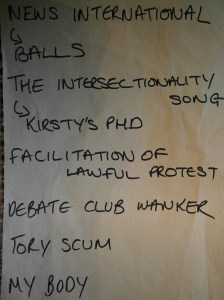 NEWS INTERNATIONAL
↳ BALLS
THE INTERSECTIONALITY
SONG
↳ KIRSTY'S PHD
FACILITATION OF
LAWFUL PROTEST
DEBATE CLUB WANKER
TORY SCUM
MY BODY